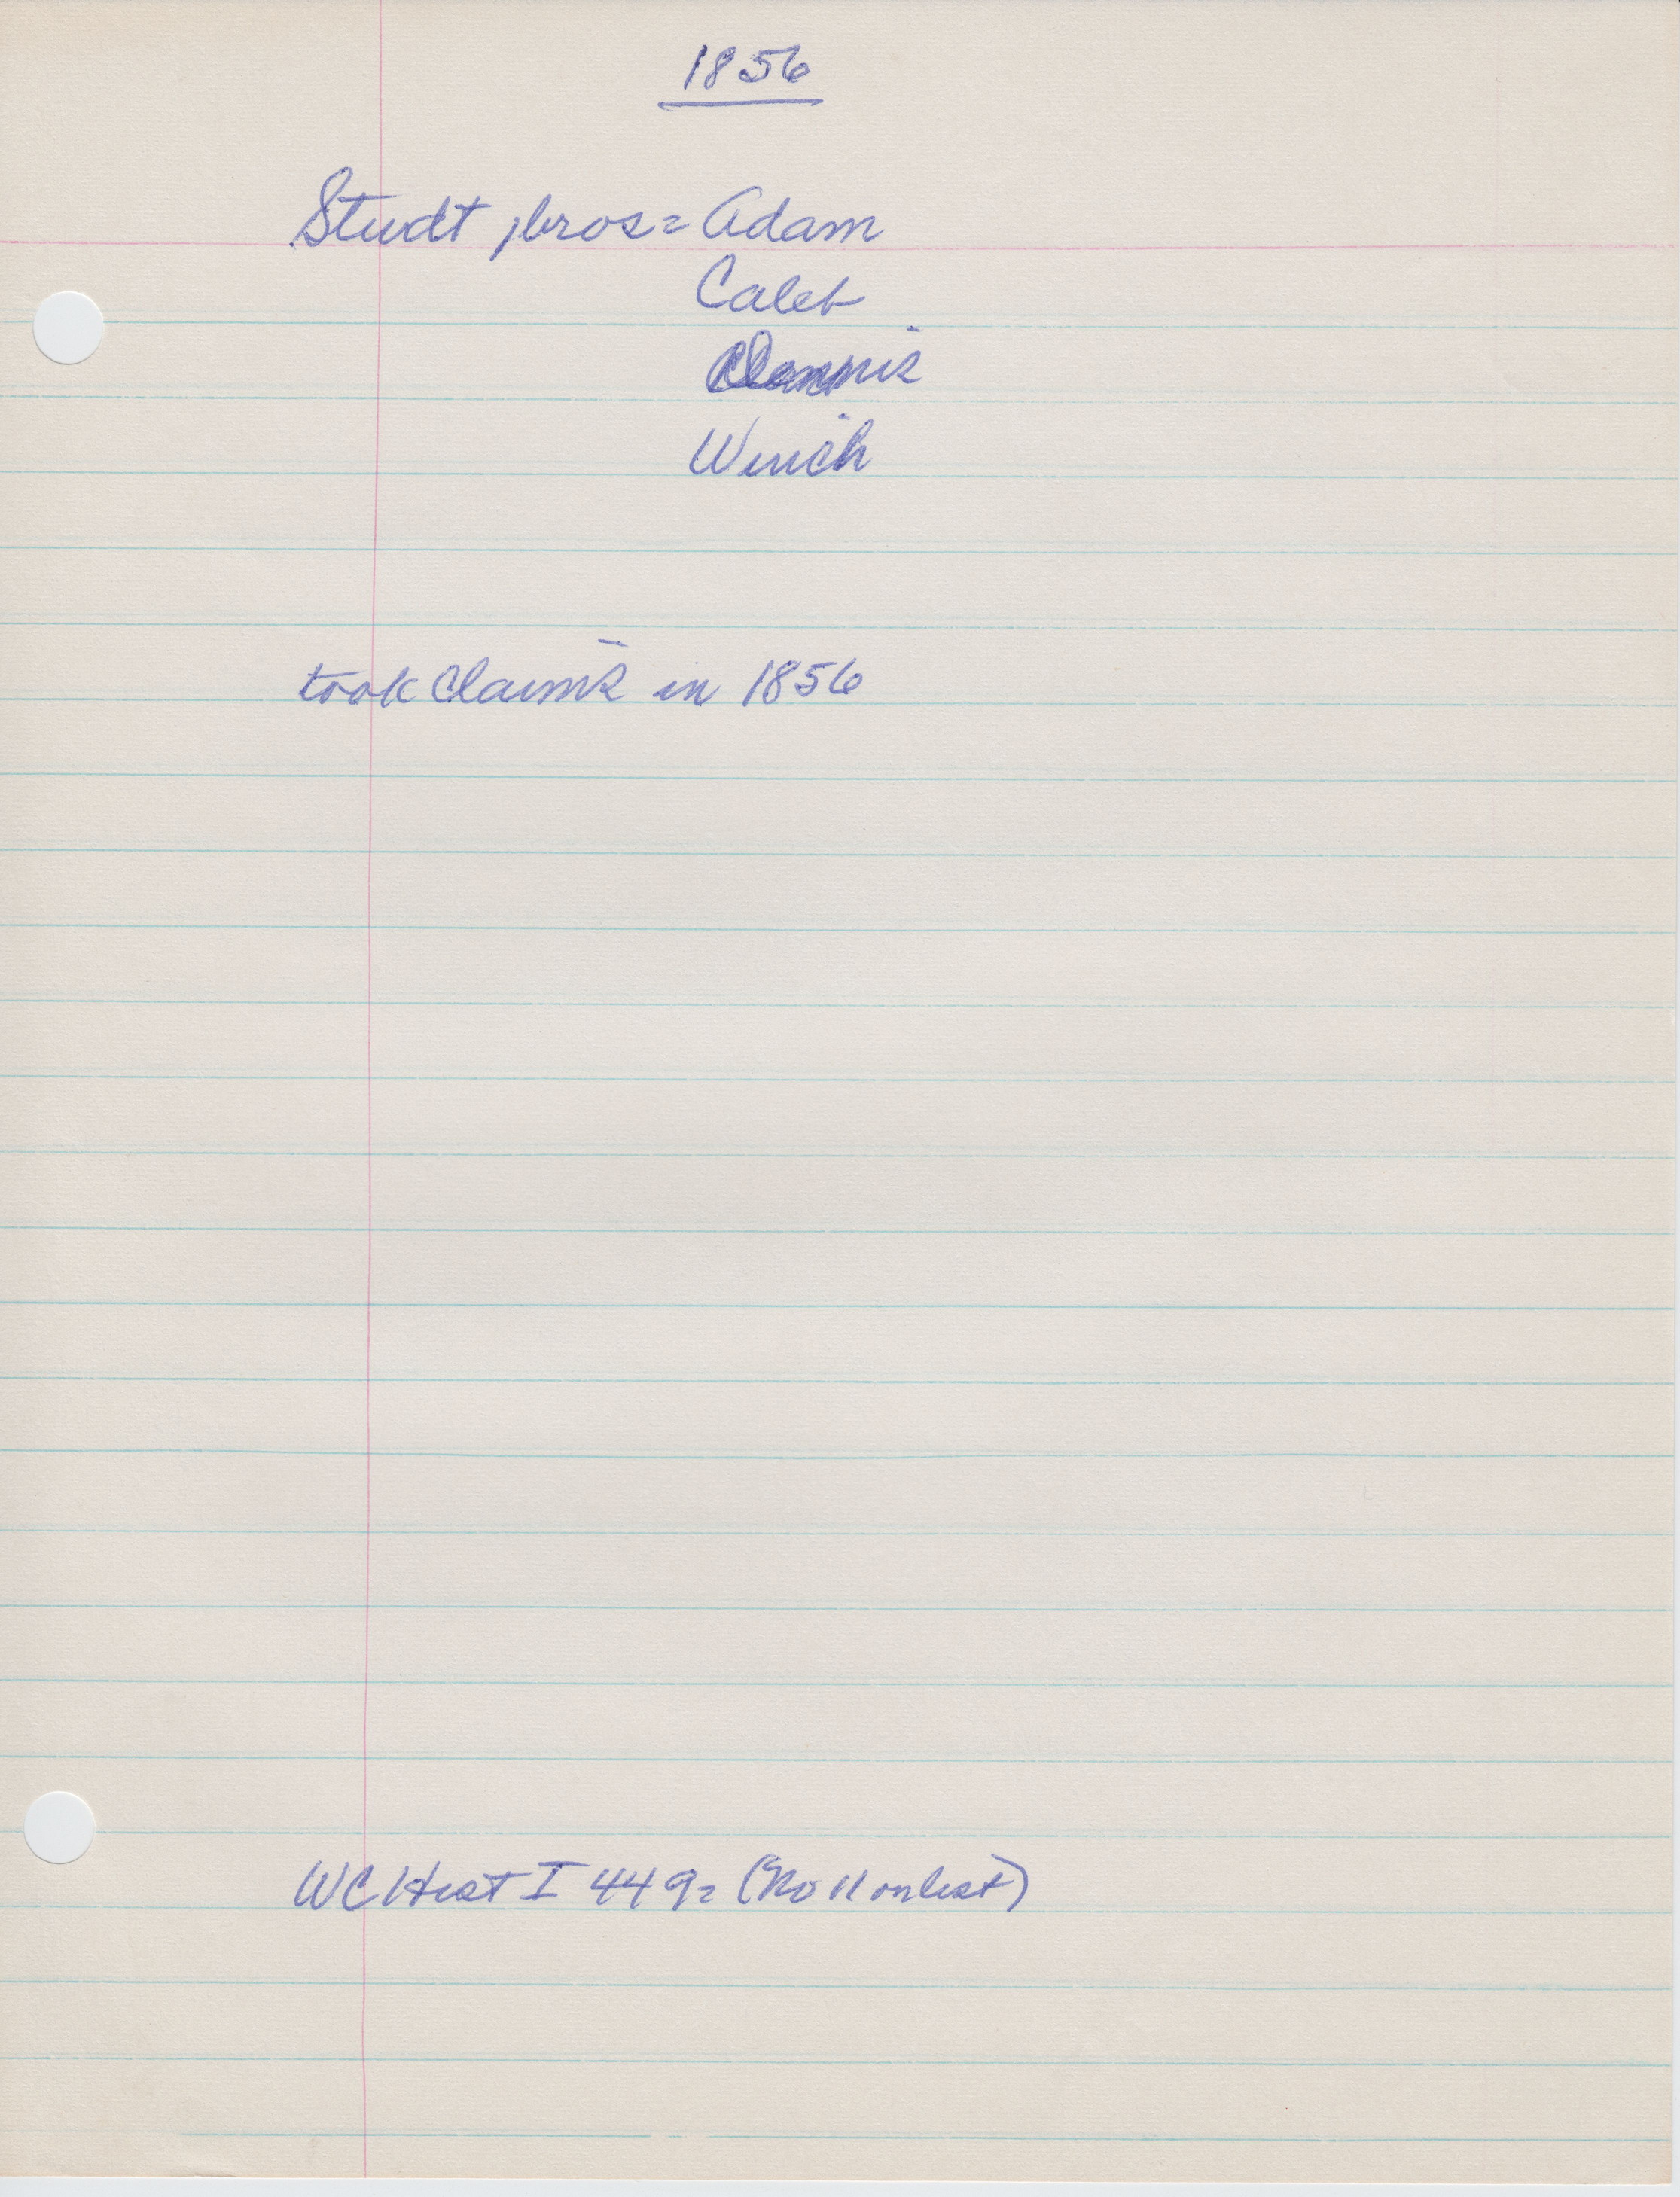 1856
Studt, bros = Adam
Caleb
Dennis
Winch
took claims in 1856
WC Hist I 449 = (No 11 on list)